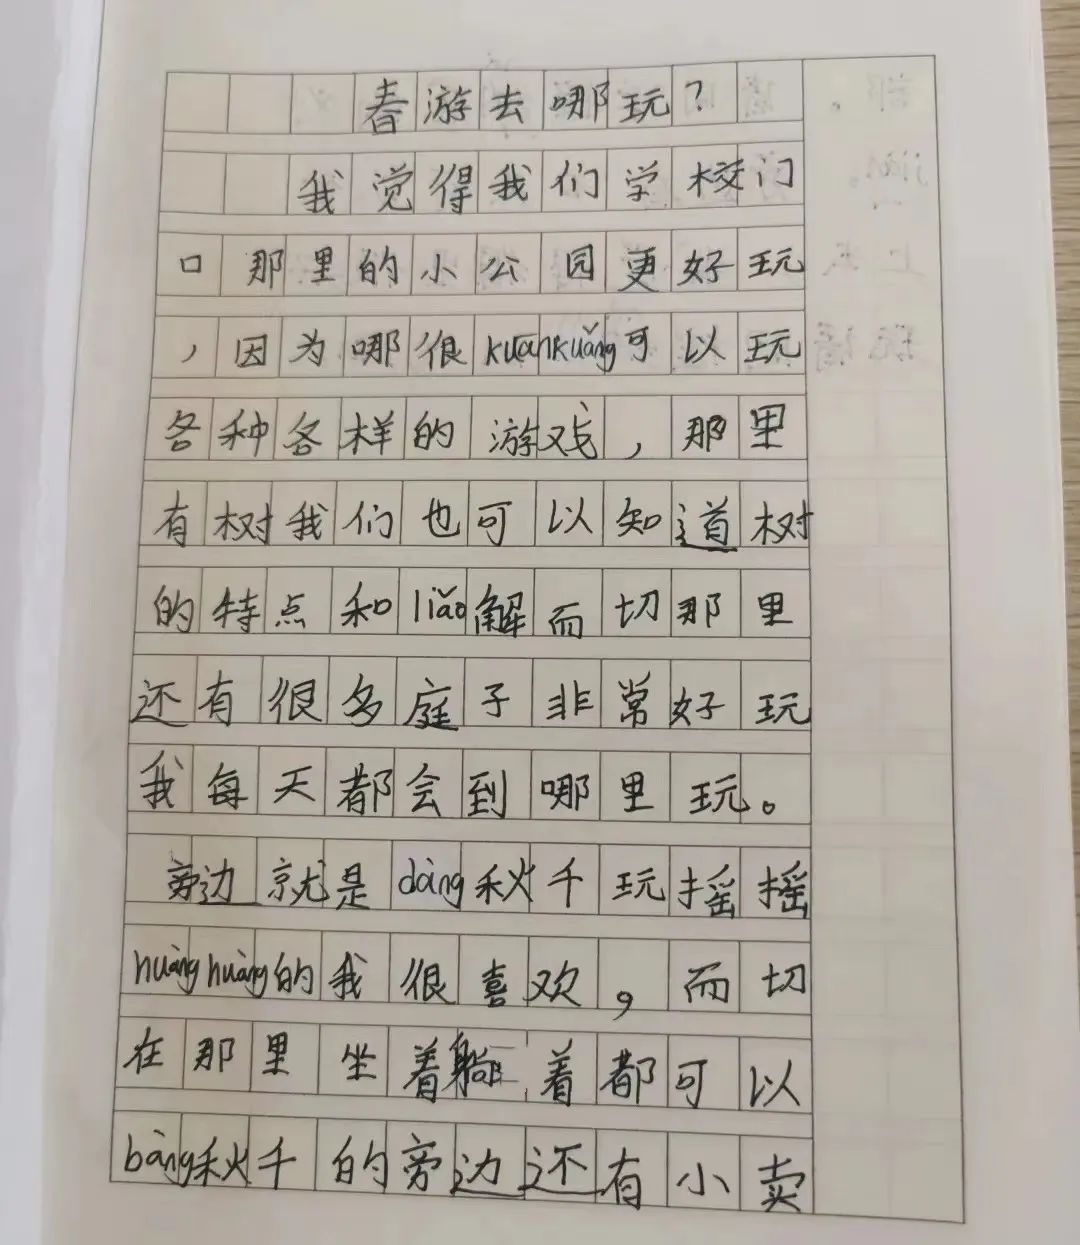 春游去哪玩?
我觉得我们学校门
口那里的小公园更好玩
,因为哪很kuānkuǎng可以玩
各种各样的游戏,那里
有树我们也可以知道树
的特点和liǎo解而切那里
还有很多庭子非常好玩
我每天都会到哪里玩。
旁边就是dàng秋千玩摇摇
huànghuàng的我很喜欢。而切
在那里坐着躺着都可以
bàng秋千的旁边还有小卖